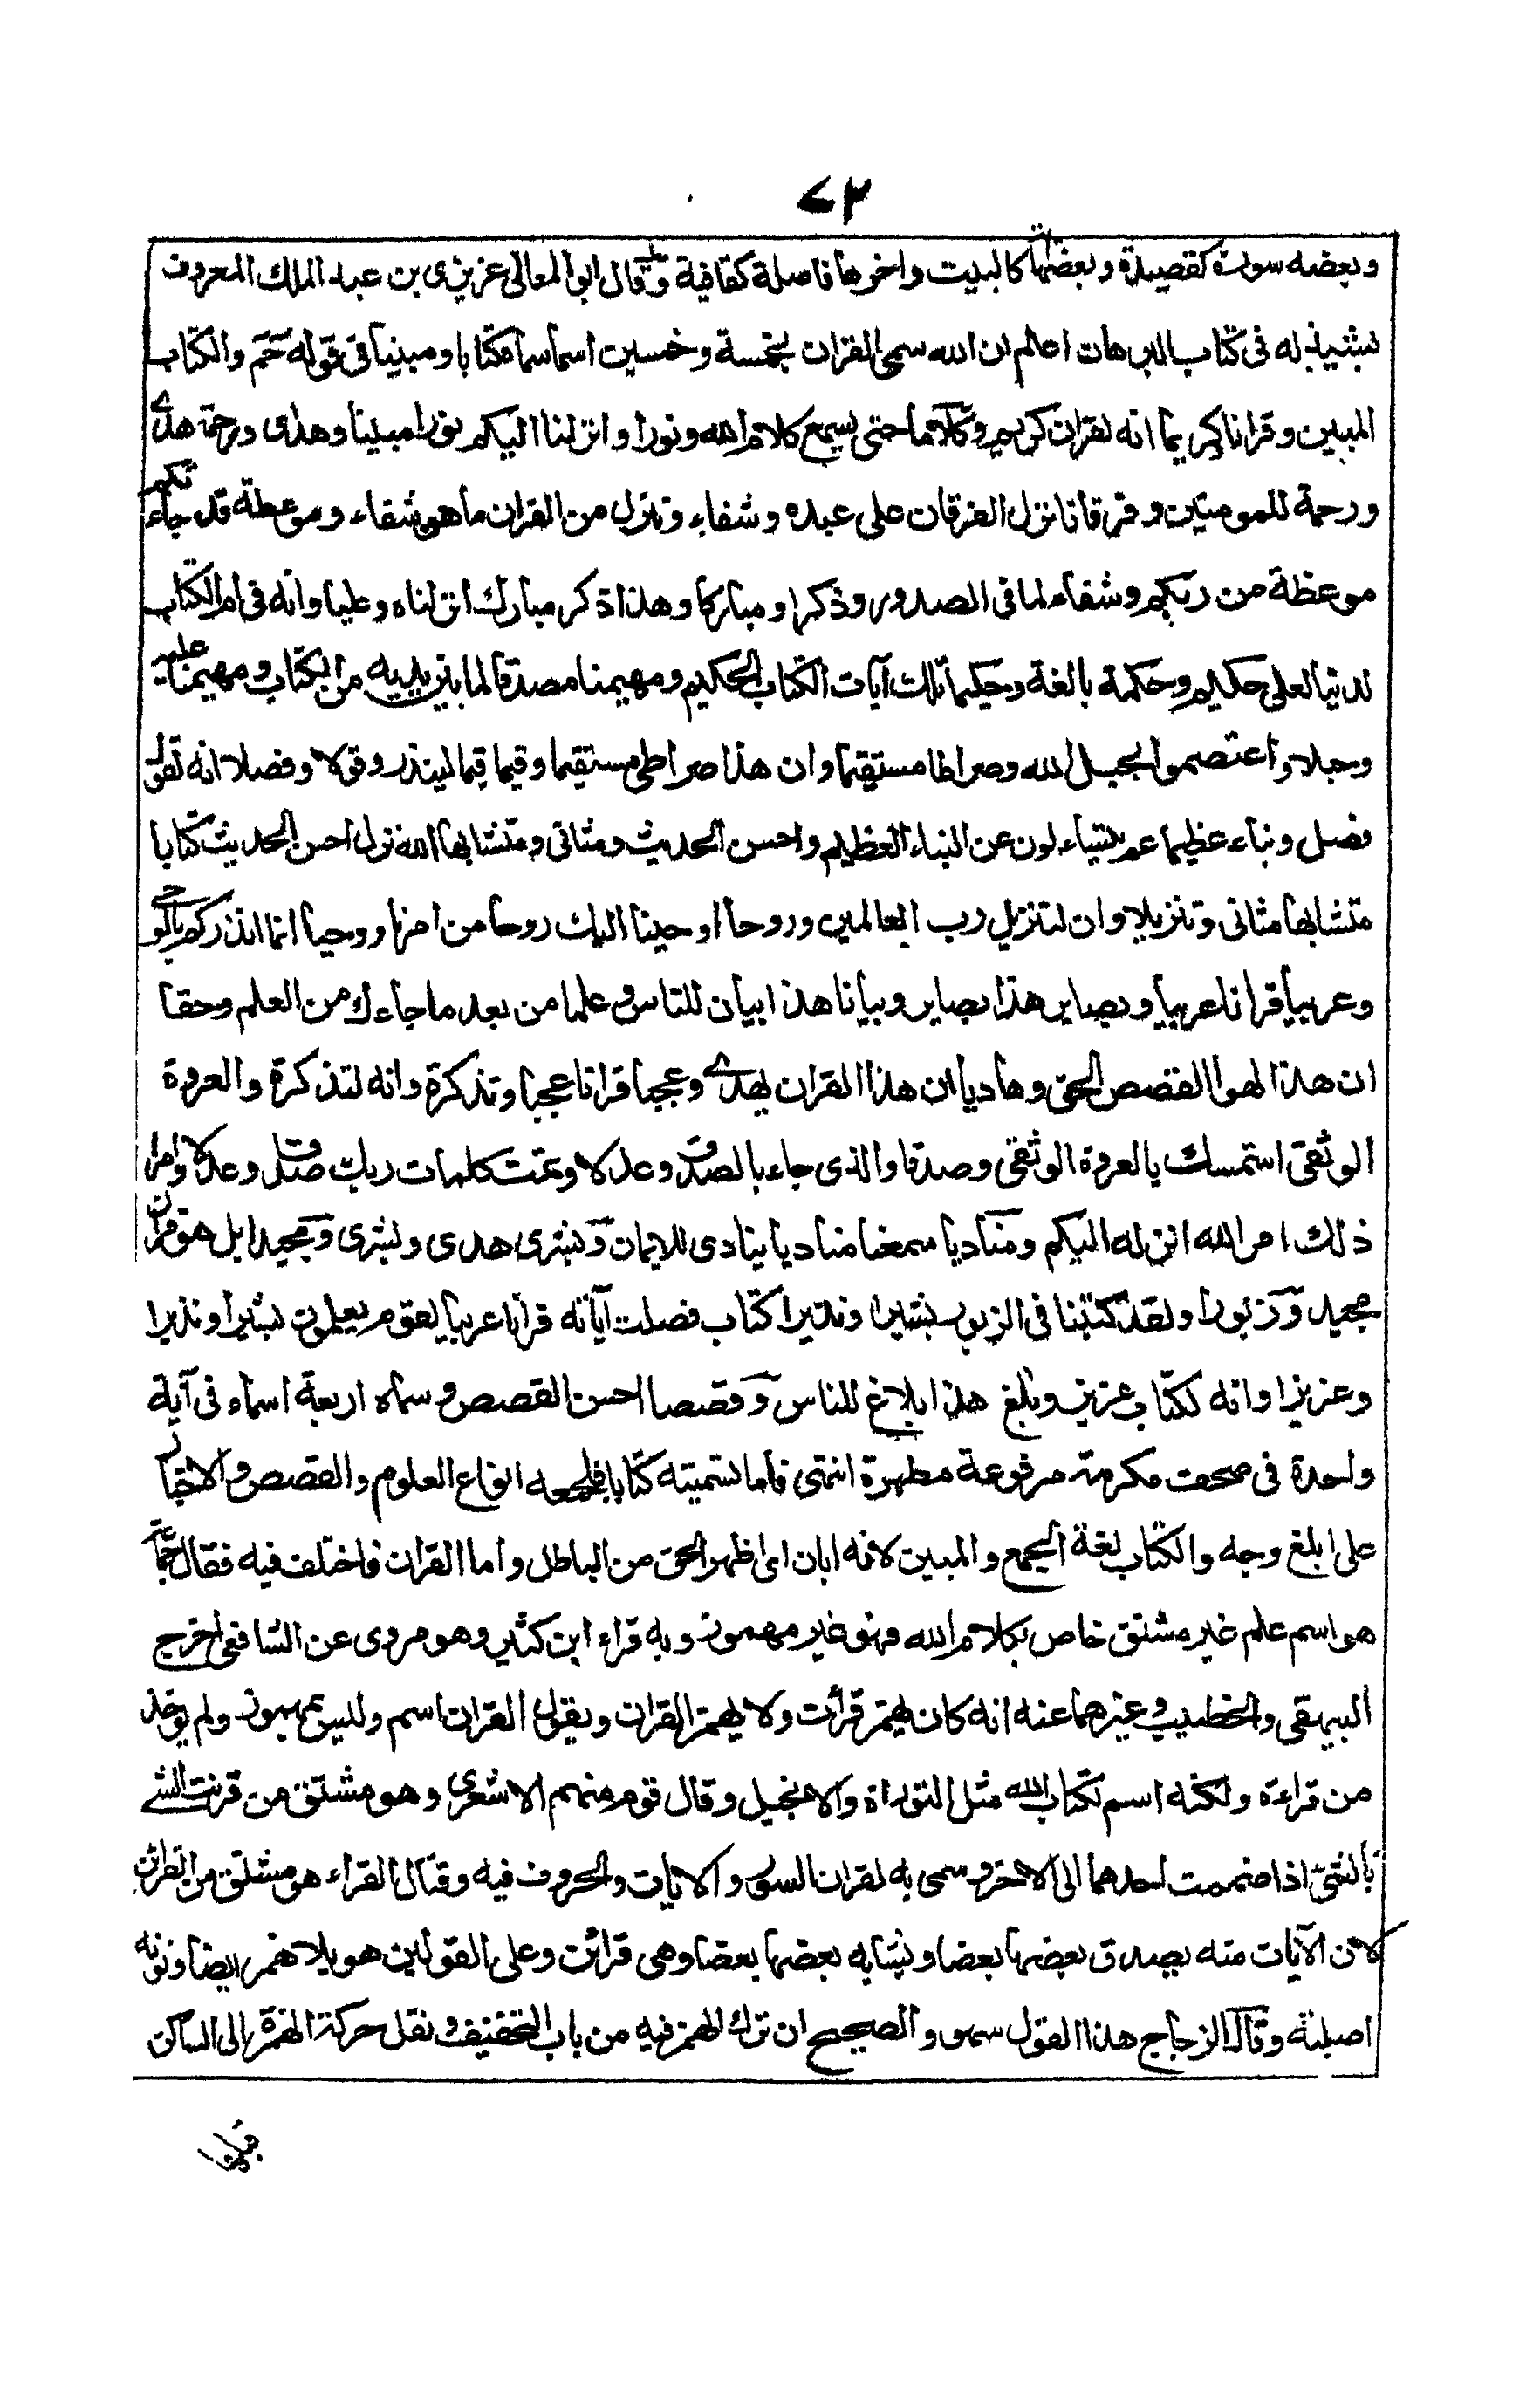 ٧٣
وبعضه سورة كقصيدة وبعضها كالبيت واخرها فاصلة كقافية وقال ابو المعالى عزيزى بن عبد الملك المعروف
بشيذله فى كتاب البرهان اعلم ان الله سمى القران بخمسة وخمسين اسما سماه كتابا ومبينا فى قوله حم والكتاب
المبين وقرانا كريما انه لقران كريم وكلاما حتى يسمع كلام الله ونورا وانزلنا اليكم نورا مبينا وهدى ورحمة هدى
ورحمة للمومنين وفرقانا نزل الفرقان على عبده وشفاء وننزل من القران ما هو شفاء وموعظة قد جاءتكم
موعظة من ربكم وشفاء لما فى الصدور وذكرا ومباركا وهذا ذكر مبارك انزلناه وعليا وانه فى ام الكتاب
لدينا لعلى حكيم وحكمة بالغة وحكيما تلك آيات الكتاب الحكيم ومهيمنا مصدقا لما بين يديه من الكتاب ومهيمنا عليه
وحبلا واعتصموا بحبل الله وصراطا مستقيما وان هذا صراطى مستقيما وقيما قيما لينذر وقولا وفصلا انه لقول
فصل ونباء عظيما عم يتساءلون عن النباء العظيم واحسن الحديث ومثانى ومتشابها الله نزل احسن الحديث كتابا
متشابها مثانى وتنزيلا وان لتنزيل رب العالمين وروحا اوحينا اليك روحا من امرنا ووحيا انما انذركم بالوحى
وعربيا قرانا عربيا وبصاير هذا بصاير وبيانا هذا بيان للناس وعلما من بعد ما جاءك من العلم وحقا
ان هذا لهو القصص الحق وهاديا ان هذا القران يهدى وعجبا قرانا عجبا وتذكرة وانه لتذكرة والعروة
الوثقى استمسك بالعروة الوثقى وصدقا والذى جاء بالصدق وعدلا وتمت كلمات ربك صدقا وعدلا وامرا
ذلك امر الله انزله اليكم ومناديا سمعنا مناديا ينادى للايمان وبشرى هدى وبشرى ومجيدا بل هو قران
مجيد وزبورا ولقد كتبنا فى الزبور بشيرا ونذيرا كتاب فصلت آياته قرانا عربيا لقوم يعلمون بشيرا ونذيرا
وعزيزا وانه لكتاب عزيز وبلغ هذا بلاغ للناس وقصصا احسن القصص وسماه اربعة اسماء فى آية
واحدة فى صحف مكرمة مرفوعة مطهرة انتهى فاما تسميته كتابا فلجمعه انواع العلوم والقصص والاخبار
على ابلغ وجه والكتاب لغة الجمع والمبين لانه ابان اى اظهر الحق من الباطل واما القران فاختلف فيه فقال جماعة
هو اسم علم غير مشتق خاص بكلام الله فهو غير مهموز وبه قراء ابن كثير وهو مروى عن الشافعى اخرج
البيهقى والخطيب وغيرهما عنه انه كان يهمز قرأت ولا يهمز القران ويقول القران اسم وليس بمهموز ولم يوخذ
من قراءة ولكنه اسم لكتاب الله مثل التوراة والانجيل وقال قوم منهم الاشعرى وهو مشتق من قرنت الشے
بالشئ اذا ضممت احدهما الى الاخر وسمى به لقران السور والايات والحروف فيه وقال القراء هو مشتق من القرائن
لان الآيات منه يصدق بعضها بعضا ويشابه بعضها بعضا وهى قرائن وعلى القولين هو بلا همز ايضا ونونه
اصلية وقال الزجاج هذا القول سهو والصحيح ان ترك الهمز فيه من باب التخفيف ونقل حركة الهمزة الى الساكن